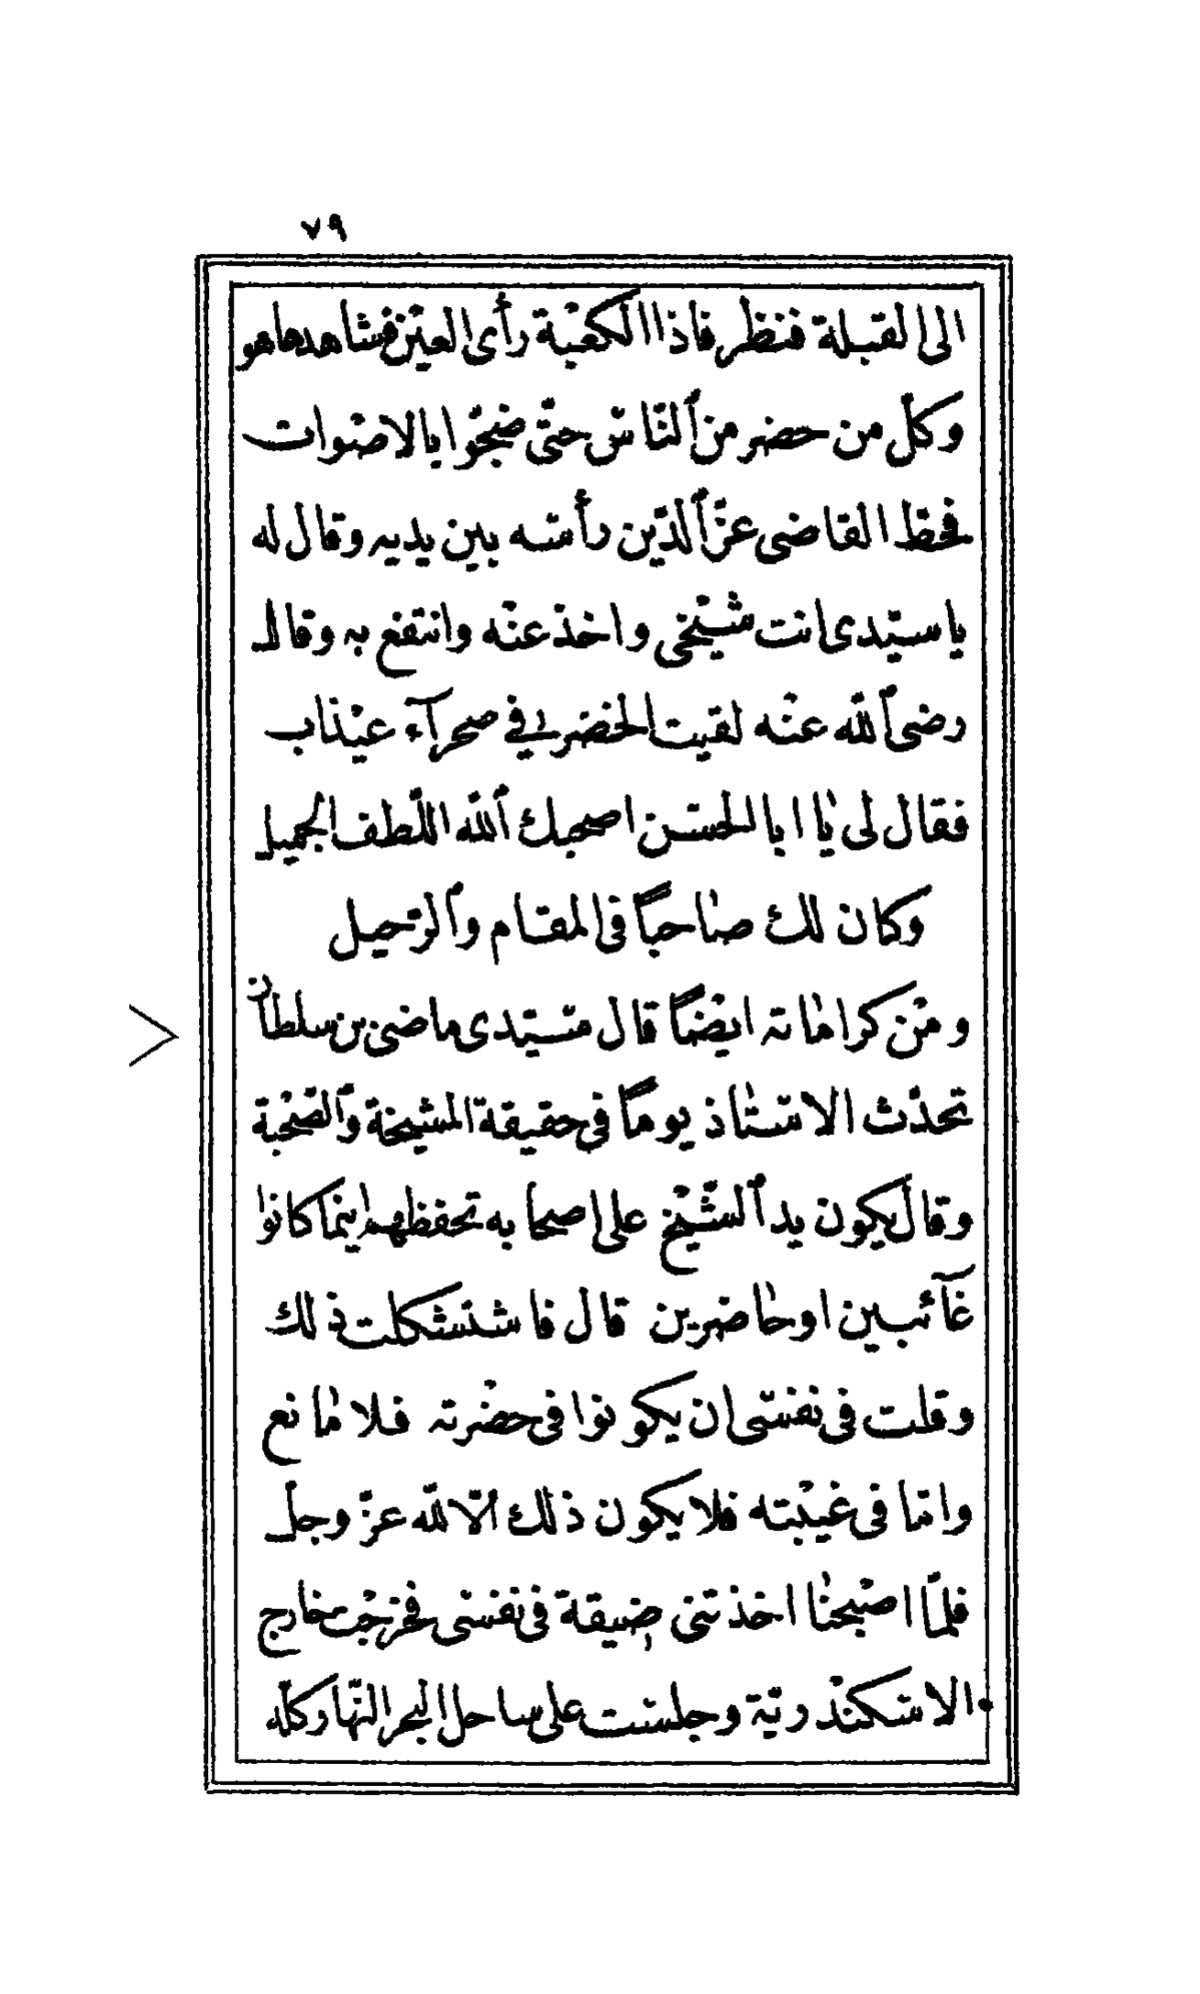 ٧٩
الى القبلة فنظر فاذا الكعْبة رأى العيْن فشاهدها هو
وكلّ من حضر من ٱلنّاسْ حتّى ضجّوا بالاصْوات
فحطّ القاضى عزّ ٱلدّين رأسْه بين يديه وقال له
يا سيّدى انت شيْخى واخذ عنْه وانتفع به وقال
رضى ٱللّه عنْه لقيت الخضر فى صحرآء عيْذاب
فقال لى يٰا ابا الحسْن اصحبك ٱللّه اللّطف الجميل
وكان لك صٰاحباً فى المقام وٱلرّحيل
ومْن كرامٰاته ايضْاً قال سْيّدى ماضى بن سلطان
تحدّث الاسْتٰاذ يوماً فى حقيقة المشيخة وٱلصّحْبة
وقال يكون يد ٱلشّيْخ على اصحابه تحفظهم اينما كانوا
غآئبين او حٰاضرين قال فاسْتشْكلت ذلك
وقلت فى نفسْى ان يكونوا فى حضْرته فلا مٰانع
وامّا فى غيْبته فلا يكون ذلك الّا للّه عزّ وجلّ
فلمّا اصْبحنٰا اخذتنى ضيقة فى نفسْى فخرجْت خارج
الاسْكنْدريّة وجلسْت على ساحل البحر النّهار كلّه